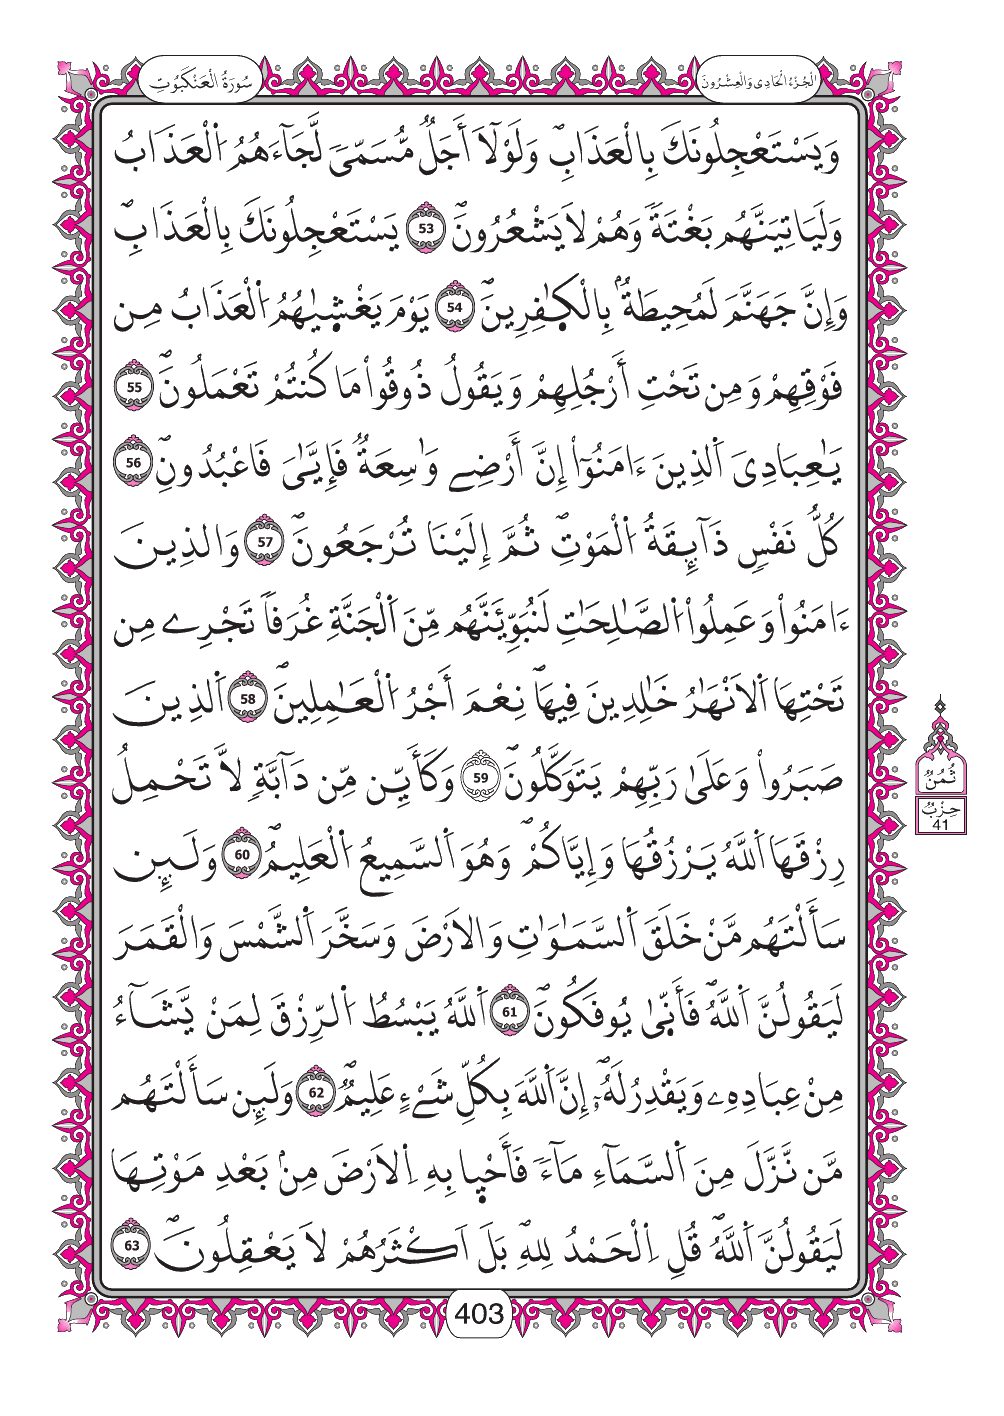 الْجُزْءُ الْحَادِي وَالْعِشْرُونَ
سُورَةُ الْعَنْكَبُوتِ
وَيَسْتَعْجِلُونَكَ بِالْعَذَابِۖ وَلَوْلَآ أَجَلٞ مُّسَمّيٗ لَّجَآءَهُمُ اُ۬لْعَذَابُ
وَلَيَاتِيَنَّهُم بَغْتَةٗ وَهُمْ لَا يَشْعُرُونَۖ 53 يَسْتَعْجِلُونَكَ بِالْعَذَابِۖ
وَإِنَّ جَهَنَّمَ لَمُحِيطَةُۢ بِالْكٰ۪فِرِينَۖ 54 يَوْمَ يَغْش۪يٰهُمُ اُ۬لْعَذَابُ مِن
فَوْقِهِمْ وَمِن تَحْتِ أَرْجُلِهِمْ وَيَقُولُ ذُوقُواْ مَا كُنتُمْ تَعْمَلُونَۖ 55
يَٰعِبَادِيَ اَ۬لذِينَ ءَامَنُوٓاْ إِنَّ أَرْضِے وَٰسِعَةٞ فَإِيَّٰيَ فَاعْبُدُونِۖ 56
كُلُّ نَفْسٖ ذَآئِقَةُ اُ۬لْمَوْتِۖ ثُمَّ إِلَيْنَا تُرْجَعُونَۖ 57 وَالذِينَ
ءَامَنُواْ وَعَمِلُواْ اُ۬لصَّٰلِحَٰتِ لَنُبَوِّئَنَّهُم مِّنَ اَ۬لْجَنَّةِ غُرَفاٗ تَجْرِے مِن
تَحْتِهَا اَ۬لَانْهَٰرُ خَٰلِدِينَ فِيهَاۖ نِعْمَ أَجْرُ اُ۬لْعَٰمِلِينَۖ 58 اَ۬لذِينَ
صَبَرُواْ وَعَلَىٰ رَبِّهِمْ يَتَوَكَّلُونَۖ 59 وَكَأَيِّن مِّن دَآبَّةٖ لَّا تَحْمِلُ
رِزْقَهَا اَ۬للَّهُ يَرْزُقُهَا وَإِيَّاكُمْۖ وَهُوَ اَ۬لسَّمِيعُ اُ۬لْعَلِيمُۖ 60 وَلَئِن
سَأَلْتَهُم مَّنْ خَلَقَ اَ۬لسَّمَٰوَٰتِ وَالَارْضَ وَسَخَّرَ اَ۬لشَّمْسَ وَالْقَمَرَ
لَيَقُولُنَّ اَ۬للَّهُۖ فَأَنّ۪يٰ يُوفَكُونَۖ 61 اَ۬للَّهُ يَبْسُطُ اُ۬لرِّزْقَ لِمَنْ يَّشَآءُ
مِنْ عِبَادِهِۦ وَيَقْدِرُ لَهُۥٓۖ إِنَّ اَ۬للَّهَ بِكُلِّ شَےْءٍ عَلِيمٞۖ 62 وَلَئِن سَأَلْتَهُم
مَّن نَّزَّلَ مِنَ اَ۬لسَّمَآءِ مَآءٗ فَأَحْي۪ا بِهِ اِ۬لَارْضَ مِنۢ بَعْدِ مَوْتِهَا
لَيَقُولُنَّ اَ۬للَّهُۖ قُلِ اِ۬لْحَمْدُ لِلهِۖ بَلَ اَكْثَرُهُمْ لَا يَعْقِلُونَۖ 63
ثُمُنُ
حِزْبُ
41
403